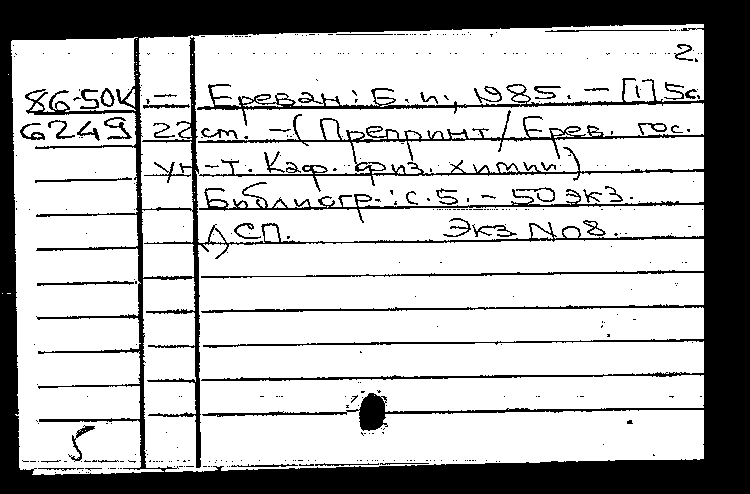 2.
86-50К. — Ереван: Б. и., 1985. — [1] 5с.
6249 22 см. — (Препринт / Ерев. гос.
ун-т. Каф. физ. химии)
Библиогр.: с. 5. — 50 экз.
ДСП. Экз. № 8.
5